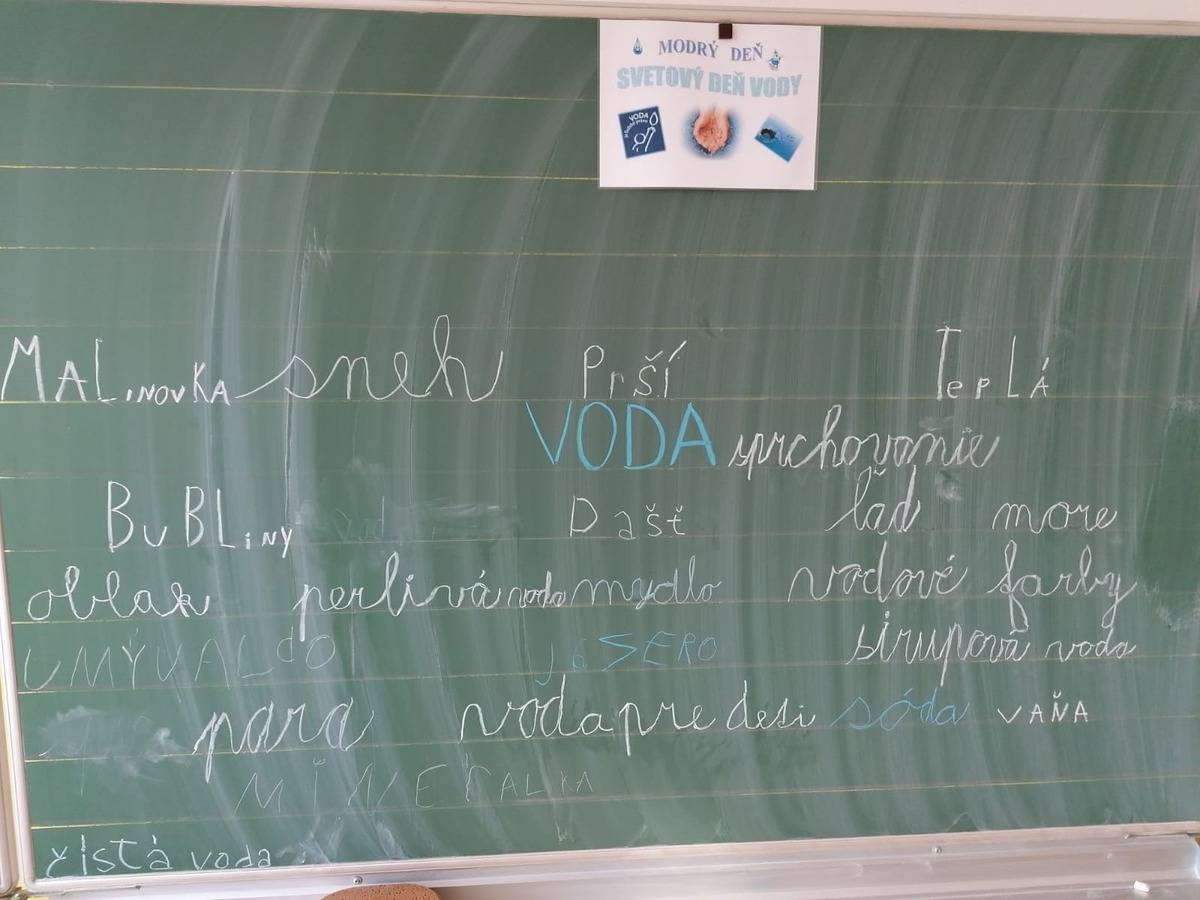 MODRÝ DEŇ
SVETOVÝ DEŇ VODY
VODA
MALiNOVKA sneh Prší TepLÁ
VODA sprchovanie
BuBLiny Dašť ľad more
oblak perlivá voda mydlo vodové farby
UMÝVALdO jaSERO sirupová voda
para voda pre deti sóda VAŇA
MINERALKA
čistá voda